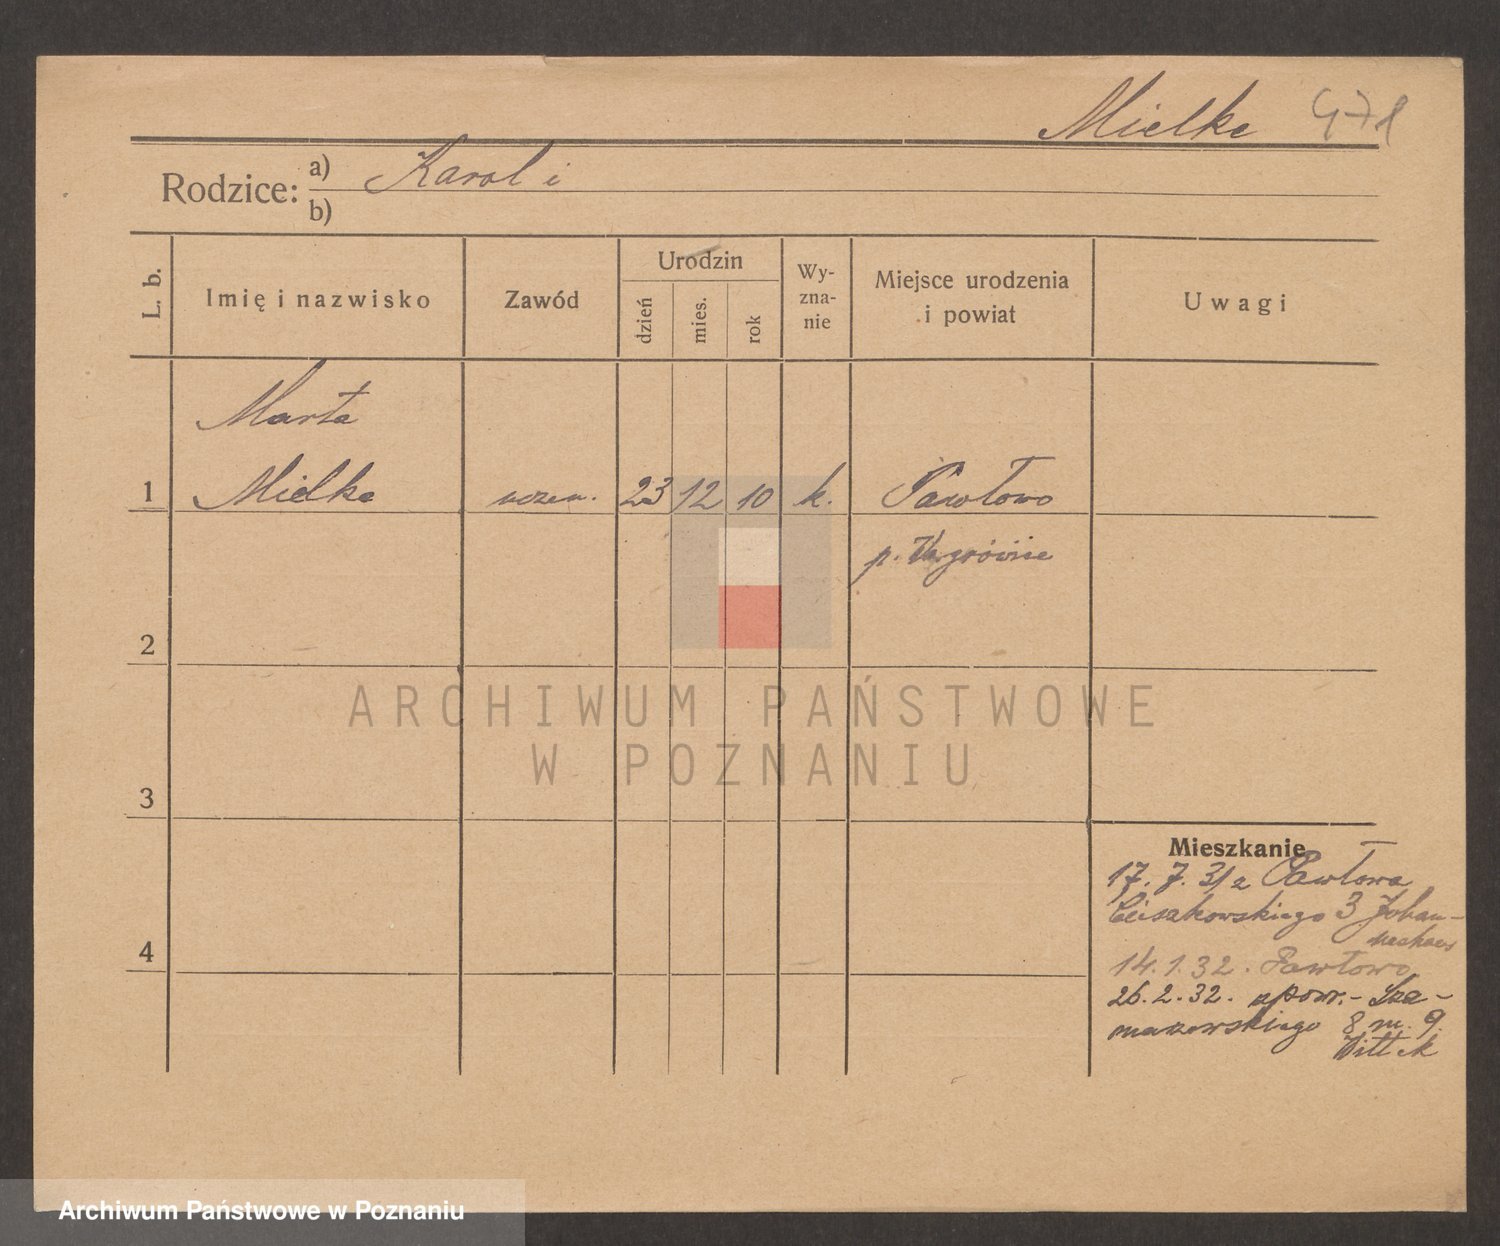 Mielke 471
Rodzice: a) Karol i
b)
L. b.
Imię i nazwisko
Zawód
Urodzin
dzień
mies.
rok
Wy-
zna-
nie
Miejsce urodzenia
i powiat
Uwagi
Marta
1 Mielke 23 12 10 k. Pawłowo
p.
2
3
4
Mieszkanie
17. 7. 31 z Pawłowa
3 Johan-
14.1.32. Pawłowo
26.2.32. spowr. - Sza-
marzewskiego 8 m. 9.
Wittek
ARCHIWUM PAŃSTWOWE
W POZNANIU
Archiwum Państwowe w Poznaniu